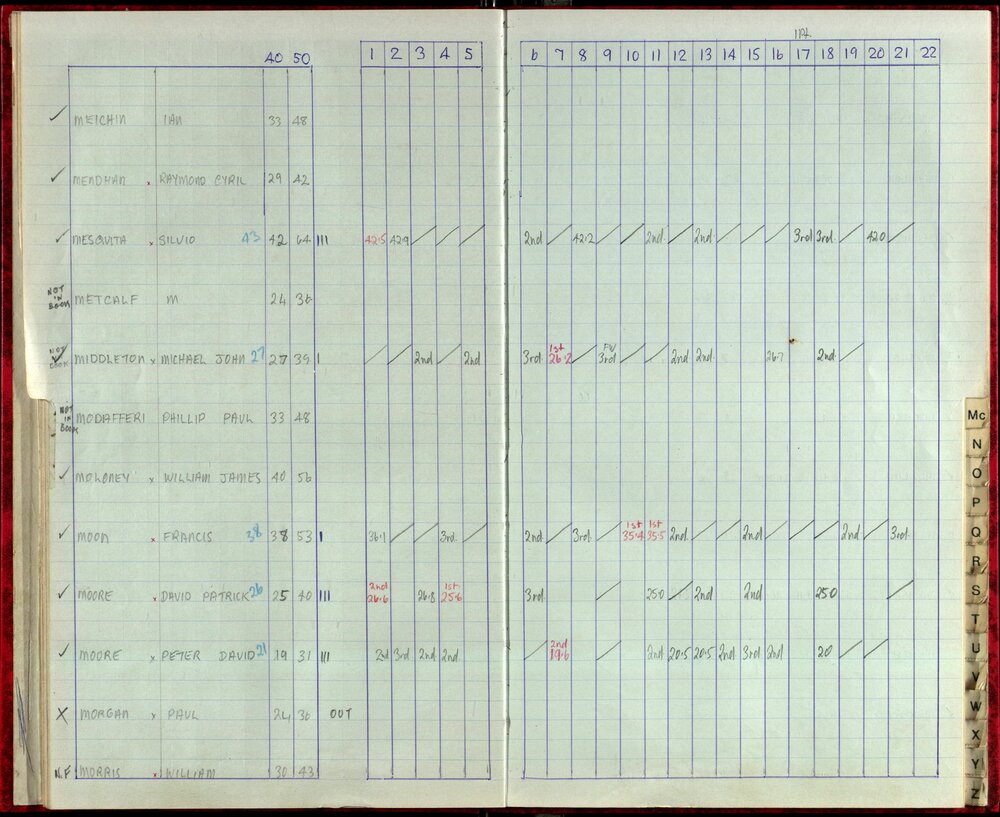 1Pt.
40 50 1 2 3 4 5 6 7 8 9 10 11 12 13 14 15 16 17 18 19 20 21 22
✓ MEICHIN IAN 33 48
✓ MENDHAN x RAYMOND CYRIL 29 42
✓ MESQUITA x SILVIO 43 42 64 III 42.5 42.9 / / / 2nd / 42.2 / / 2nd / 2nd / / / 3rd 3rd / 42.0 /
NOT IN BOOK METCALF M 24 36
NOT BOOK ✓ MIDDLETON x MICHAEL JOHN 27 27 39 I / / 2nd / 2nd 3rd 1st 26.2 / 3rd / / 2nd 2nd 26.7 2nd /
NOT IN BOOK MODAFFERI PHILLIP PAUL 33 48
✓ MOLONEY x WILLIAM JAMES 40 56
✓ MOON x FRANCIS 38 38 53 I 36.1 / / 3rd / 2nd / 3rd / 1st 35.4 1st 35.5 2nd / / 2nd / / / 2nd / 3rd
✓ MOORE x DAVID PATRICK 26 25 40 III 2nd 26.6 26.8 1st 25.6 3rd / 25.0 / 2nd 2nd 25.0 /
✓ MOORE x PETER DAVID 21 19 31 III 2nd 3rd 2nd 2nd / 2nd 19.6 / 2nd 20.5 20.5 2nd 3rd 2nd 20 / /
X MORGAN x PAUL 24 36 OUT
N.F MORRIS x WILLIAM 30 43
Mc
N
O
P
Q
R
S
T
U
V
W
X
Y
Z